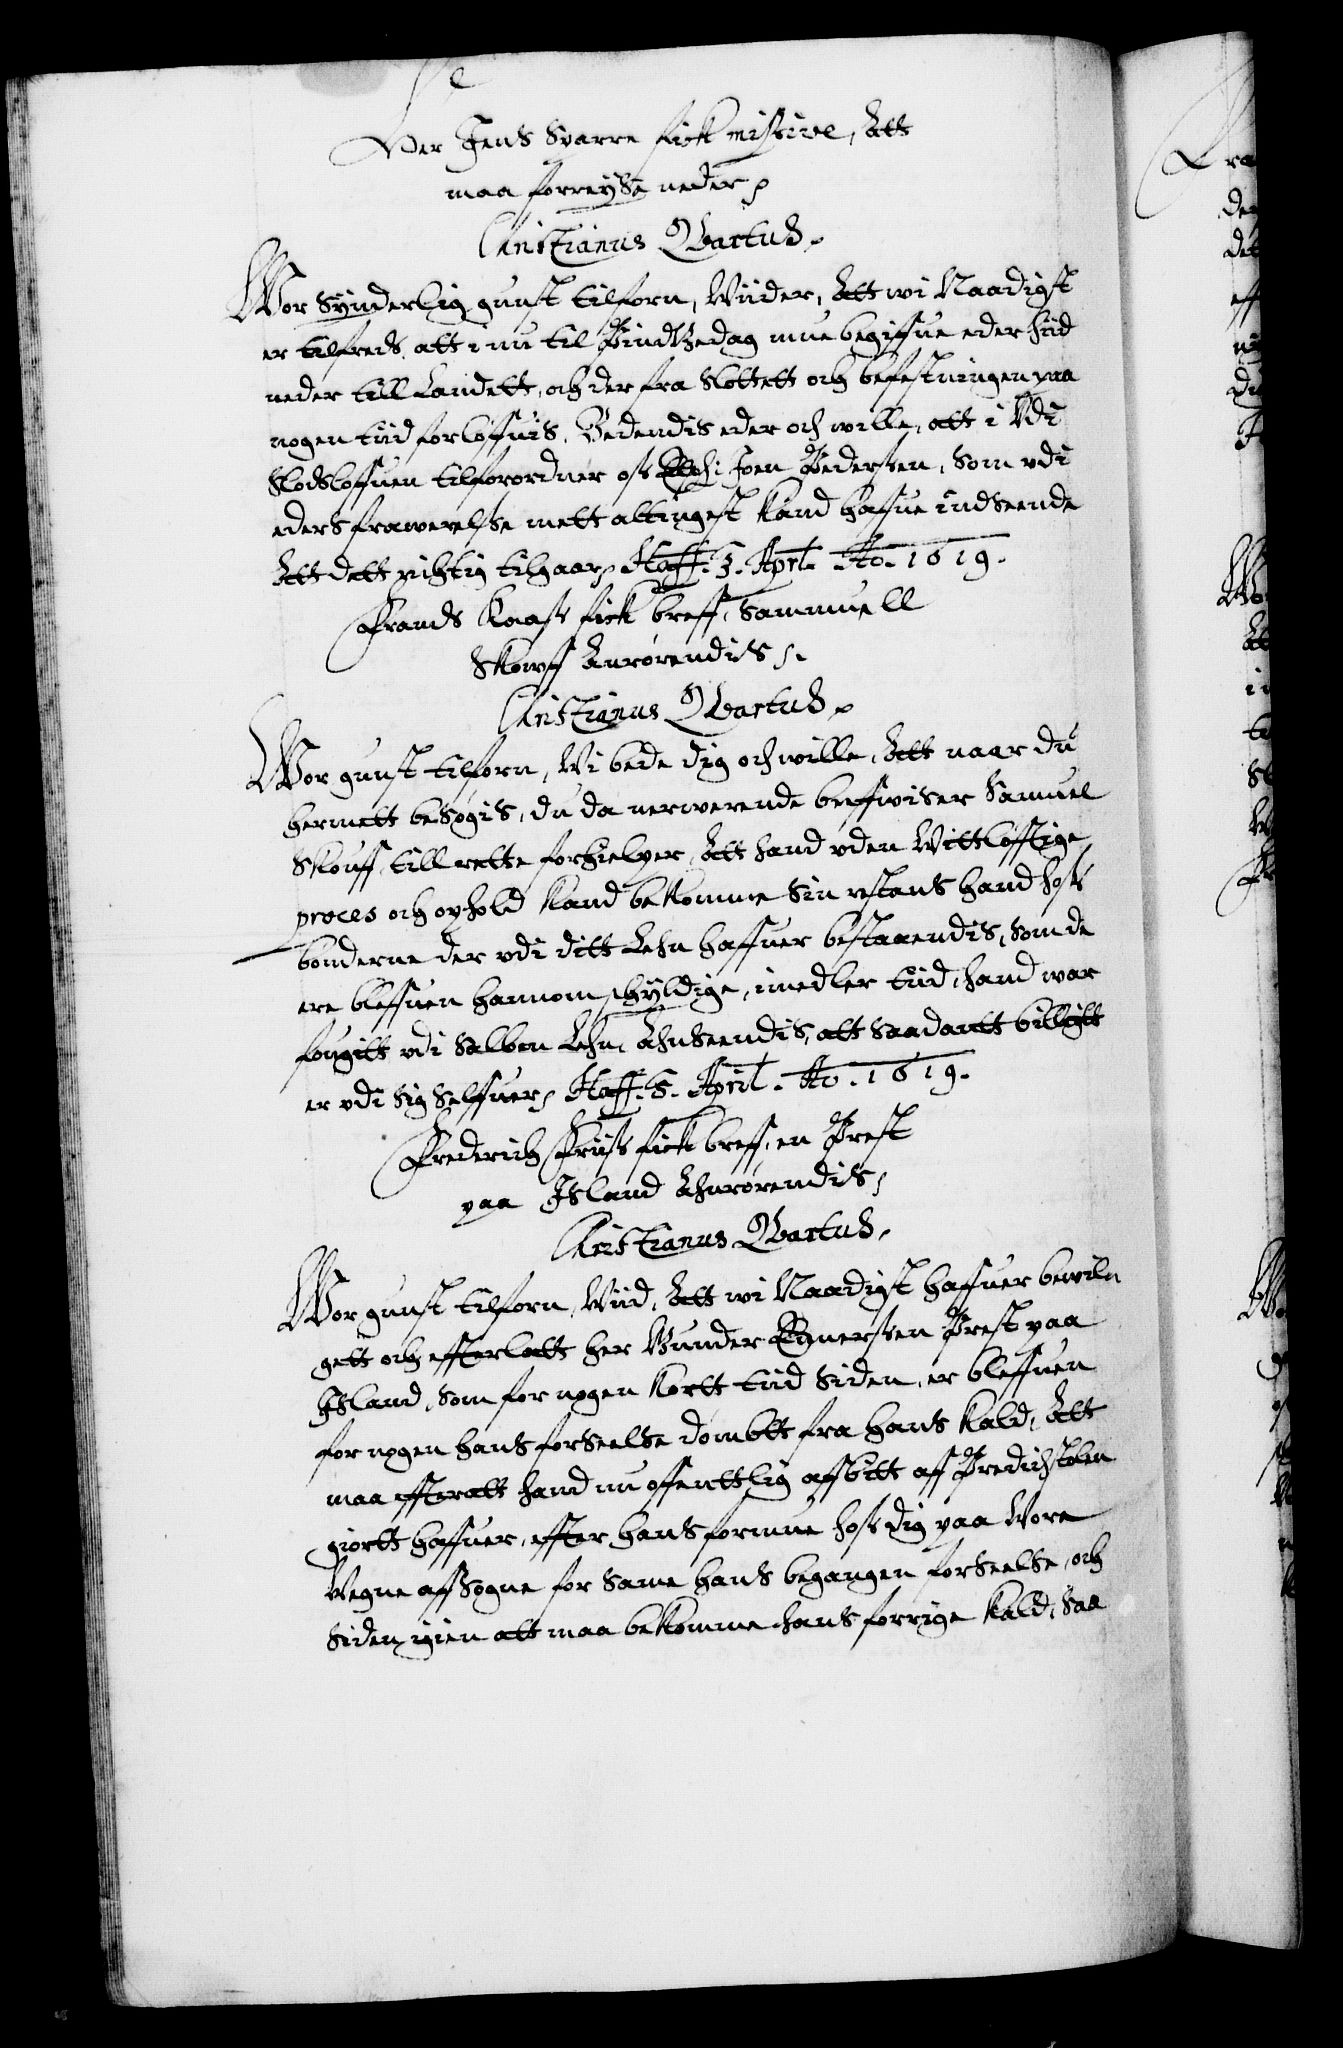 Her Jens Sparre fick missive, Att
maa forreyse neder
Christianus Qvartus.
Wor synderlig gunst tilforn, Wiider, Att wi Naadigst
er tilfreds att i nu til Pindtzedag mue begiffue eder hiid
neder till Landett, och der fra Slottett och befestningen paa
nogen tiid forløffuis. Bedendis eder och wille, att i Udi
Slodsloffuen tilforordner oss Elsch: Joen Pedersen, Som udi
eders frawerelse mett altingest kand haffue indseende
Att dett richtig tilgaar, Haff. 3. Aprl. Ao. 1619.
Frands Kaass fick breff, Sammuell
Skouff Anrørendis.
Christianus Qvartus.
Wor gunst tilforn, Wi bede dig och wille, Att naar du
hermett besøgis, du da nerwerende breffwiser Samuel
Skouff till rette forhielper, Att hand uden Wittløfftige
proces och ophold kand bekomme sin restans hand hoss
bønderne der udi ditt Lehn haffuer bestaaendis, som de
ere bleffuen hannom schyldige, imedler tiid, hand war
fougitt udi Salben Lehn, Ahnseendis, att saadantt billigtt
er udi sig selffuer, Haff. 5. April. Ao. 1619.
Frederich Friis fick breff, en Prest
paa Jsland Ahnrørendis
Christianus Qvartus.
Wor gunst tilforn, Wiid, Att wi Naadigst haffuer bewil-
gett och efterlatt her Gunder Eynersen Prest paa
Jsland, Som for nogen kortt tiid siden, er bleffuen
for nogen hans forseelse dømbtt fra hans kald, Att
maa effteratt hand nu offenttlig affbitt aff Predichstolen
giortt haffuer, effter hans formue hoss dig paa Wore
Wegne aff Sogne for same hans begangen forseelse, och
siden igien att maa bekomme hans forrige kald, saa